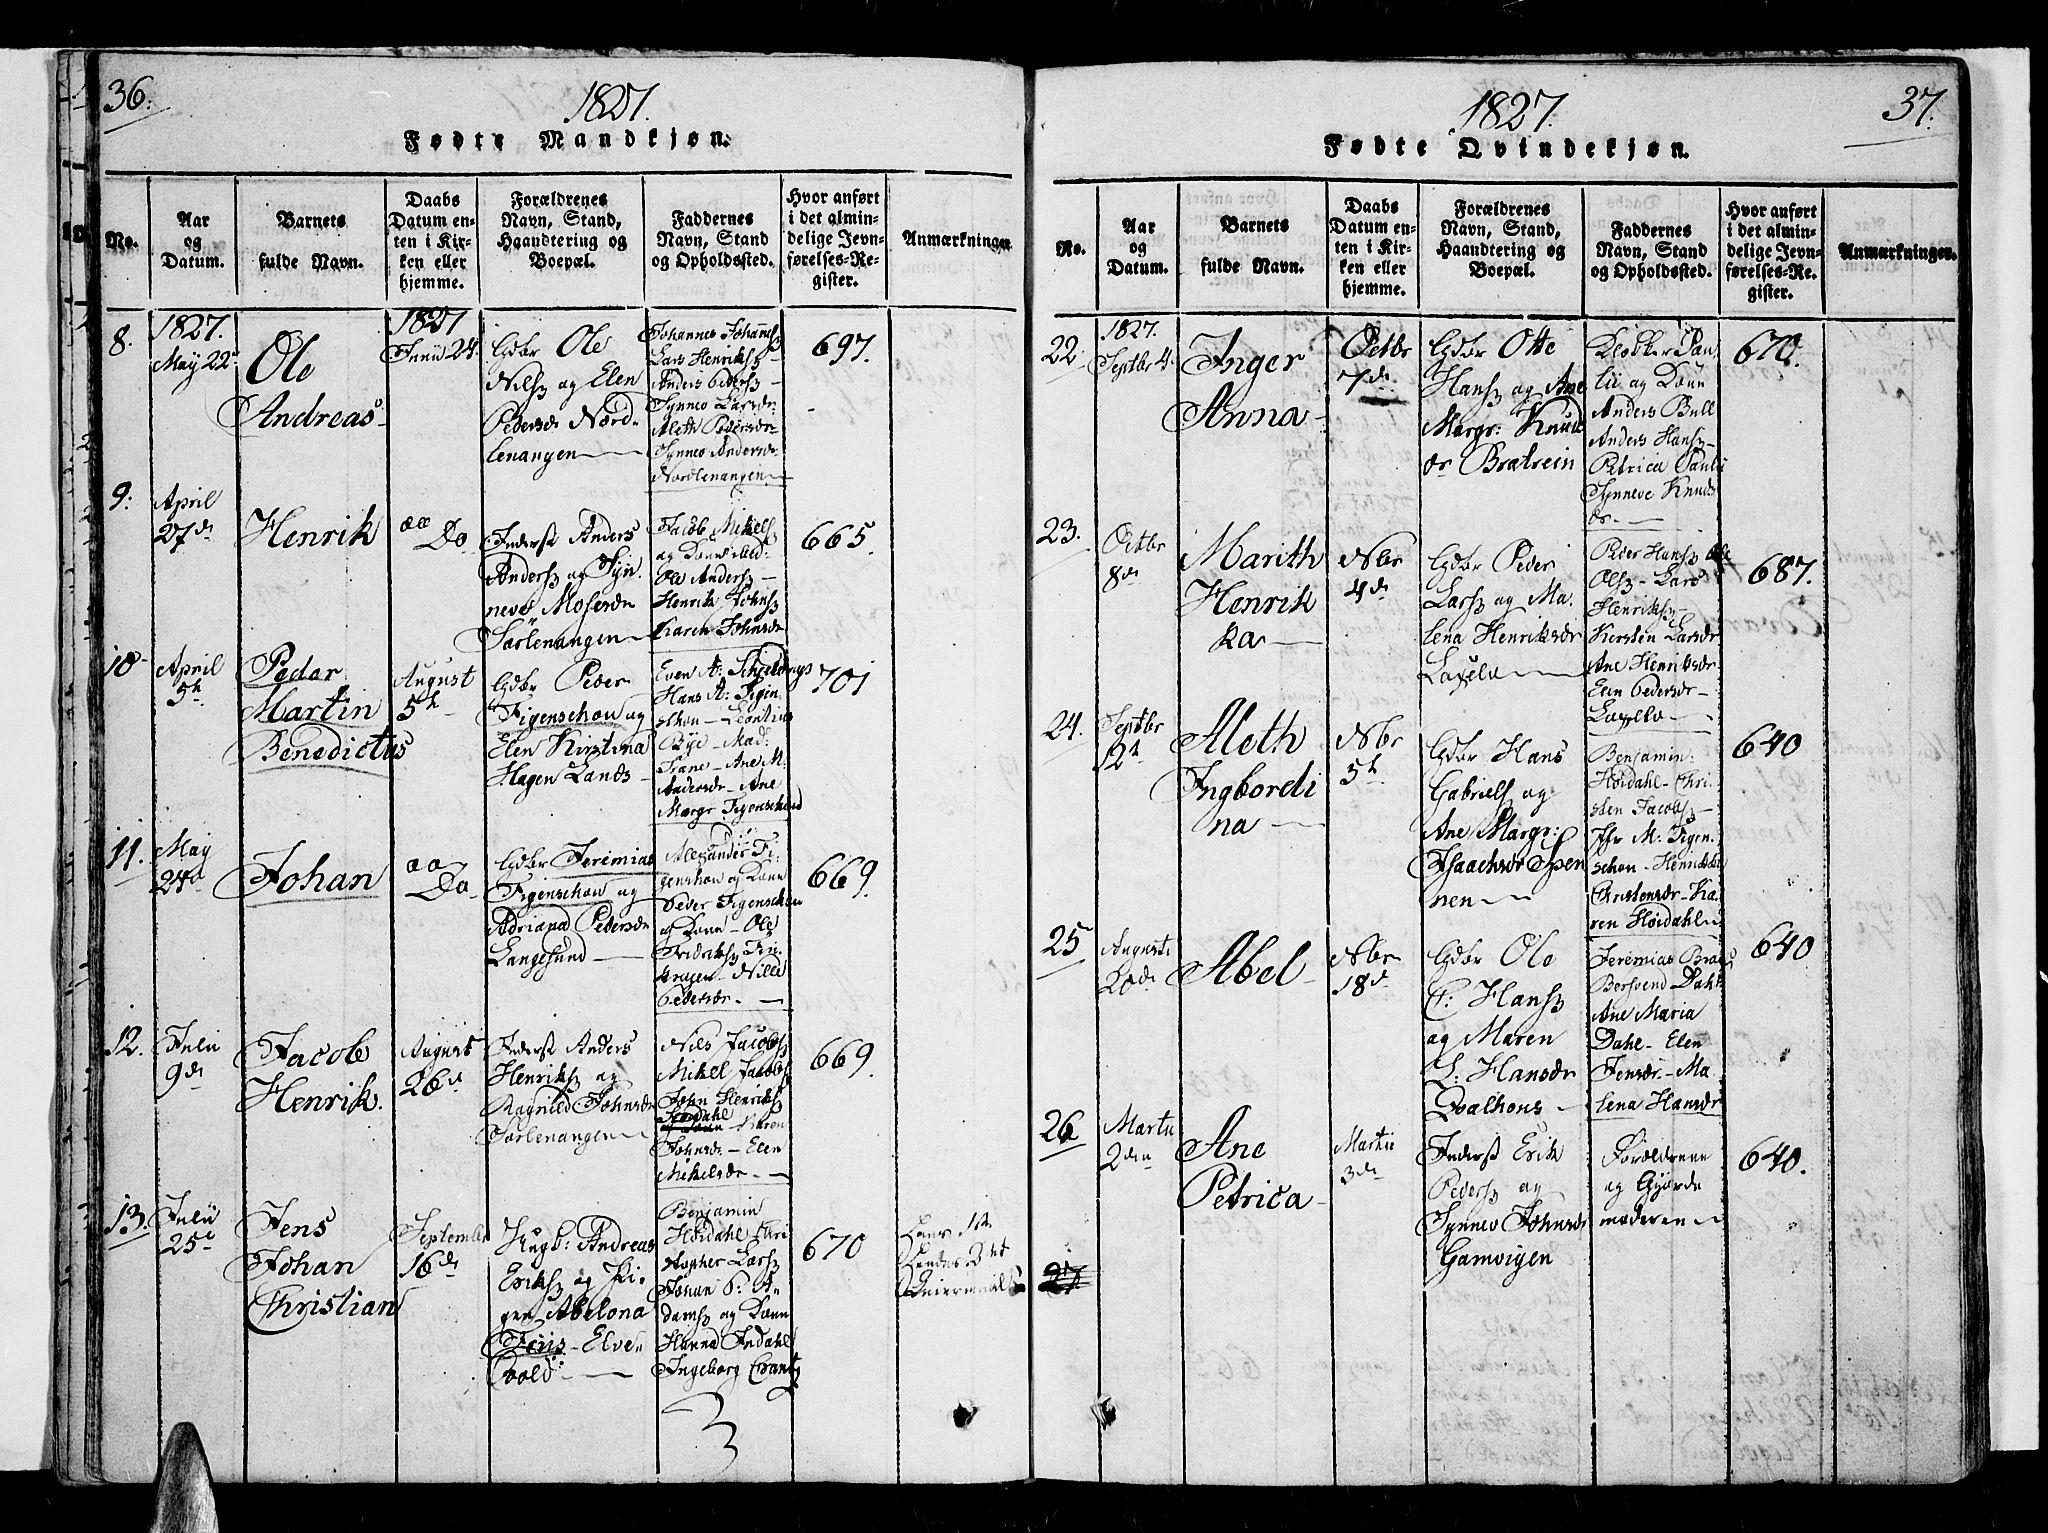 36.
1827.
Fødte Mandkjøn.
No.
Aar
og
Datum.
Barnets
fulde Navn.
Daabs
Datum en-
ten i Kir-
ken eller
hjemme.
Forældrenes
Navn, Stand,
Haandtering og
Boepæl.
Faddernes
Navn, Stand
og Opholdssted.
Hvor anført
i det almin-
delige Jevn-
førelses-Re-
gister.
Anmærkninger.
8.
1827.
May 22
Ole
Andreas
1827
Junii 24.
Gdbr Ole
Nils og Elen
Pedersdr Nord-
lenangen
Johannes Johanns
Lars Henriks
Anders Peders
Synnev Larsdr
Aleth Pedersdr
Synnev Andersdr
Nordlenangen
697.
9.
April
27de
Henrik
Do
Inderst Anders
Anders og Syn
nev Mosesdr
Sørlenangen
Jacob Mikels
og
Ole Anders
Henrik Johns
Karen Johnsdr
665.
10
April
5h
Peder
Martin
Benedictus
August
5h
Gdbr Peder
Figenschou og
Elen Kirstina
Hagen Lands
Even A: Schjelderup
Hans A: Figen
schou - Leontius
Bye - Mad:
Trane - Ane M.
Andersdr - Ane
Margr Figenschoud
701
11.
May
24d
Johan
Do
Gdbr Jeremias
Figenschou og
Adriana Pedersdr
Langesund
Alexander Fi-
genschou og Konn
Peder Figenschou
og Konn - Ole
Fridriks Fin
Nille
Pedersdr
669.
12.
Julii
9de
Jacob
Henrik.
August
26d
Inderst Anders
Henriks og
Ragnild Johnsdr
Sørlenangen
Nils Jacobs
Mikel Jacobs
John Henriks
Høidahl
Karen
Johnsdr - Elen
Mikelsdr
669.
13.
Julii
25d
Jens
Johan
Christian
Septembr
16de
Ungk: Andreas
Eriks og Pi-
gen Abelona
Jens - Elve-
vold
Benjamin
Høidahl Chri
stopher Lars
Johan P: A-
dams og Konn
Hanna Indahl
Ingeborg Crantz
670
Hans 1st
Hendes 2det
Leiermaal
37.
1827.
Fødte Qvindekjøn.
No.
Aar
og
Datum.
Barnets
fulde Navn.
Daabs
Datum en-
ten i Kir-
ken eller
hjemme.
Forældrenes
Navn, Stand,
Haandtering og
Boepæl.
Faddernes
Navn, Stand
og Opholdssted.
Hvor anført
i det almin-
delige Jevn-
førelses-Re-
gister.
Anmærkninger.
22
1827.
Septbr 4.
Inger
Anna
Octbr
7de
Gdbr Otte
Hans og Ane
Margr: Knuds
dr Bratrein
Klokker Pau
li og Konn
Anders Bull
Anders Hans
Petrica Pauli
Synneve Knuds
dr
670.
23.
Octbr
8de
Marith
Henrik
ka
Nbr
4de
Gdbr Peder
Lars og Ma
lena Henriksdr
Laxelv
Peder Hans Ole
Ols - Lars
Henriks
Kirsten Larsdr
Ane Henriksdr
Elen Pedersdr
Laxelv
687.
24.
Septbr
12d
Aleth
Ingbordi
na
Nbr
5h
Gdbr Hans
Gabriels og
Ane Margr:
Isaachsdr Spen
nen
Benjamin
Høidahl - Chri
sten Jacobs
Jfr M: Figen
schou - Henrikke
Christensdr - Ka
ren Høidahl
640
25
Augusti
20de
Abel
Nbr
18d
Gdbr Ole
C: Hans
og Maren
S: Hansdr
Qvalhous
Jeremias Bra
Bersvend Dahl
Ane Maria
Dahl - Elen
Jensdr - Ma
lena Hansdr
640
26
Martii
2den
Ane
Petrica
Martii
3de
Inderst Erik
Peders og
Synnev Johnsdr
Gamvigen
Forældrene
og Gjorde
moderen
640.
27